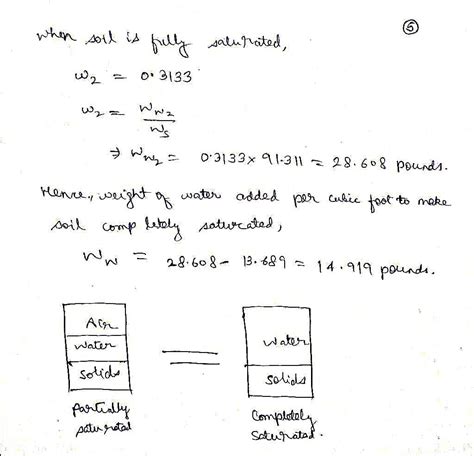 ⑤
When soil is fully saturated,
ω₂ = 0.3133
ω₂ = W_w₂ / W_s
⇒ W_w₂ = 0.3133 × 91.311 = 28.608 pounds.
Hence, weight of water added per cubic foot to make
soil completely saturated,
W_w = 28.608 - 13.689 = 14.919 pounds.
Air
water
solids
=
water
solids
Partially
saturated
Completely
Saturated.